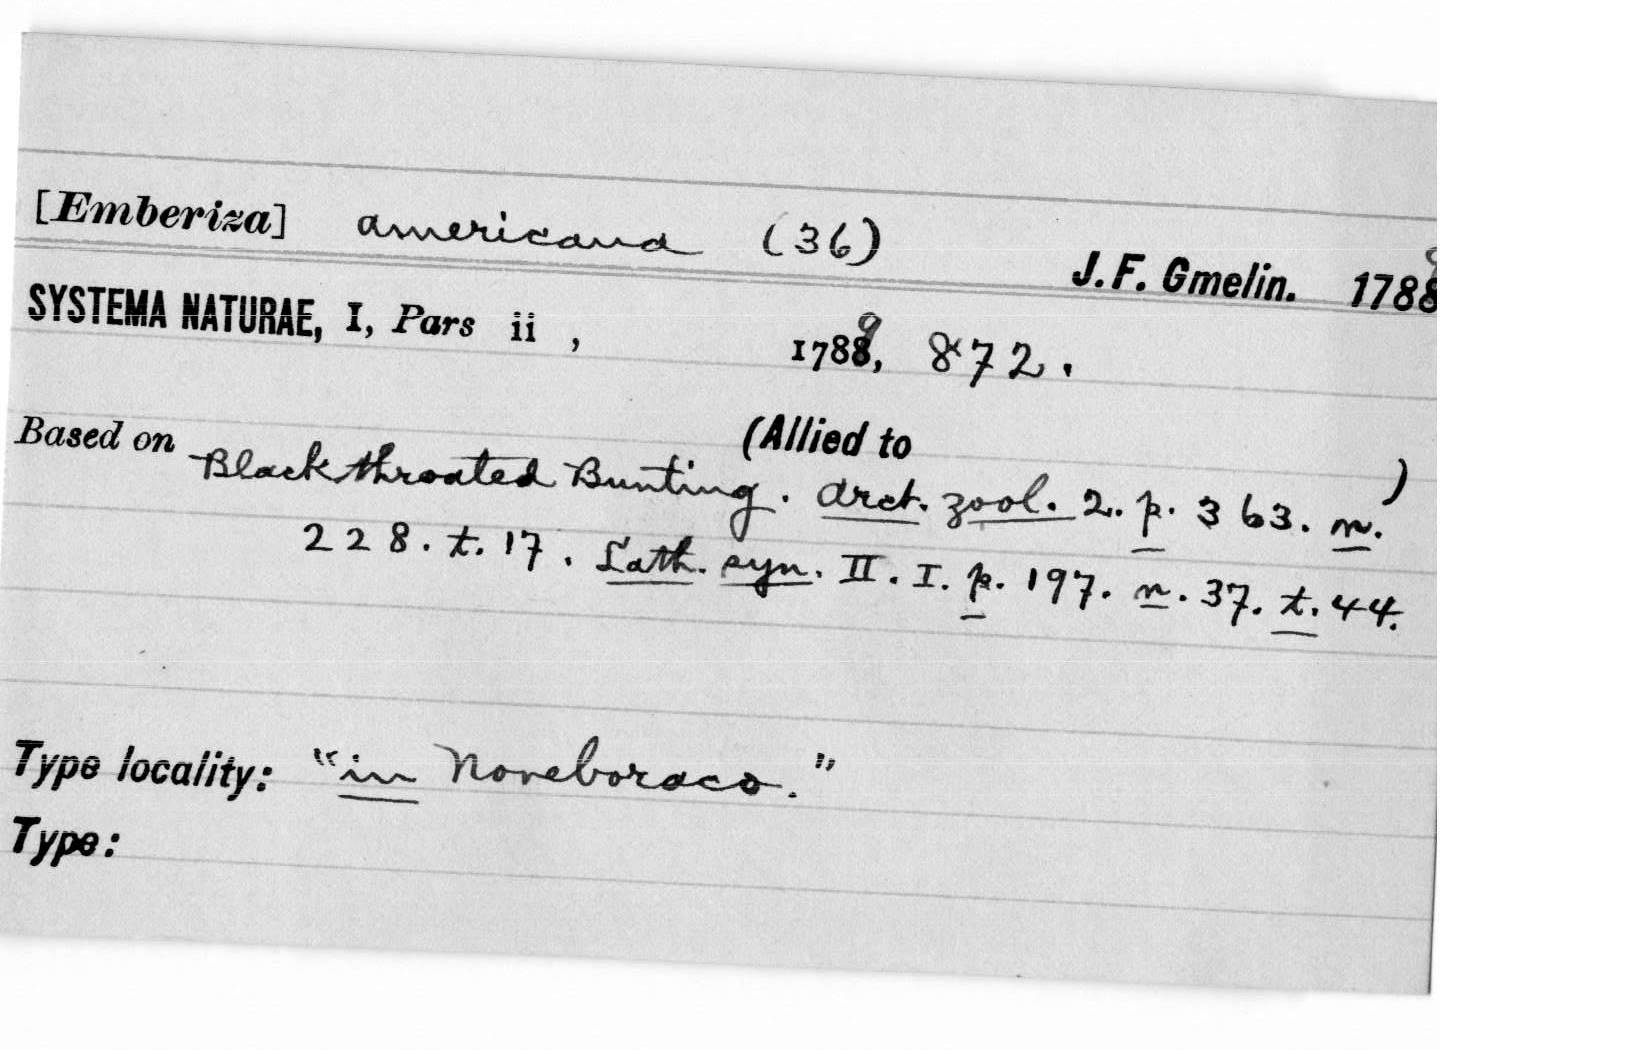 [Emberiza] americana (36)
J. F. Gmelin. 1789
SYSTEMA NATURAE, I, Pars ii, 1789, 872.
(Allied to )
Based on Blackthroated Bunting. Arct. zool. 2. p. 363. n.
228. t. 17. Lath. syn. II. I. p. 197. n. 37. t. 44.
Type locality: "in Noveboraco."
Type: